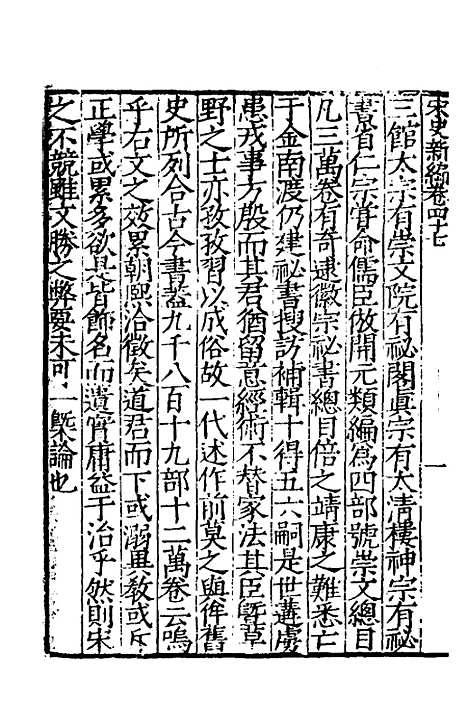 宋史新編卷四十七
一
三館太宗有崇文院有祕閣眞宗有太清樓神宗有祕
書省仁宗甞命儒臣倣開元類編爲四部號崇文總目
凡三萬卷有奇逮徽宗祕書總目倍之靖康之難悉亡
于金南渡仍建祕書搜訪補輯十得五六嗣是世遘虜
患戎事方殷而其君猶留意經術不替家法其臣曁草
野之士亦孜孜習以成俗故一代述作前莫之與侔舊
史所列合古今書葢九千八百十九部十二萬卷云嗚
乎右文之效累朝熙洽徵矣道君而下或溺異敎或斥
正學或累多欲具皆飾名而遺實庸益于治乎然則宋
之不競雖文勝之弊要未可一槩論也